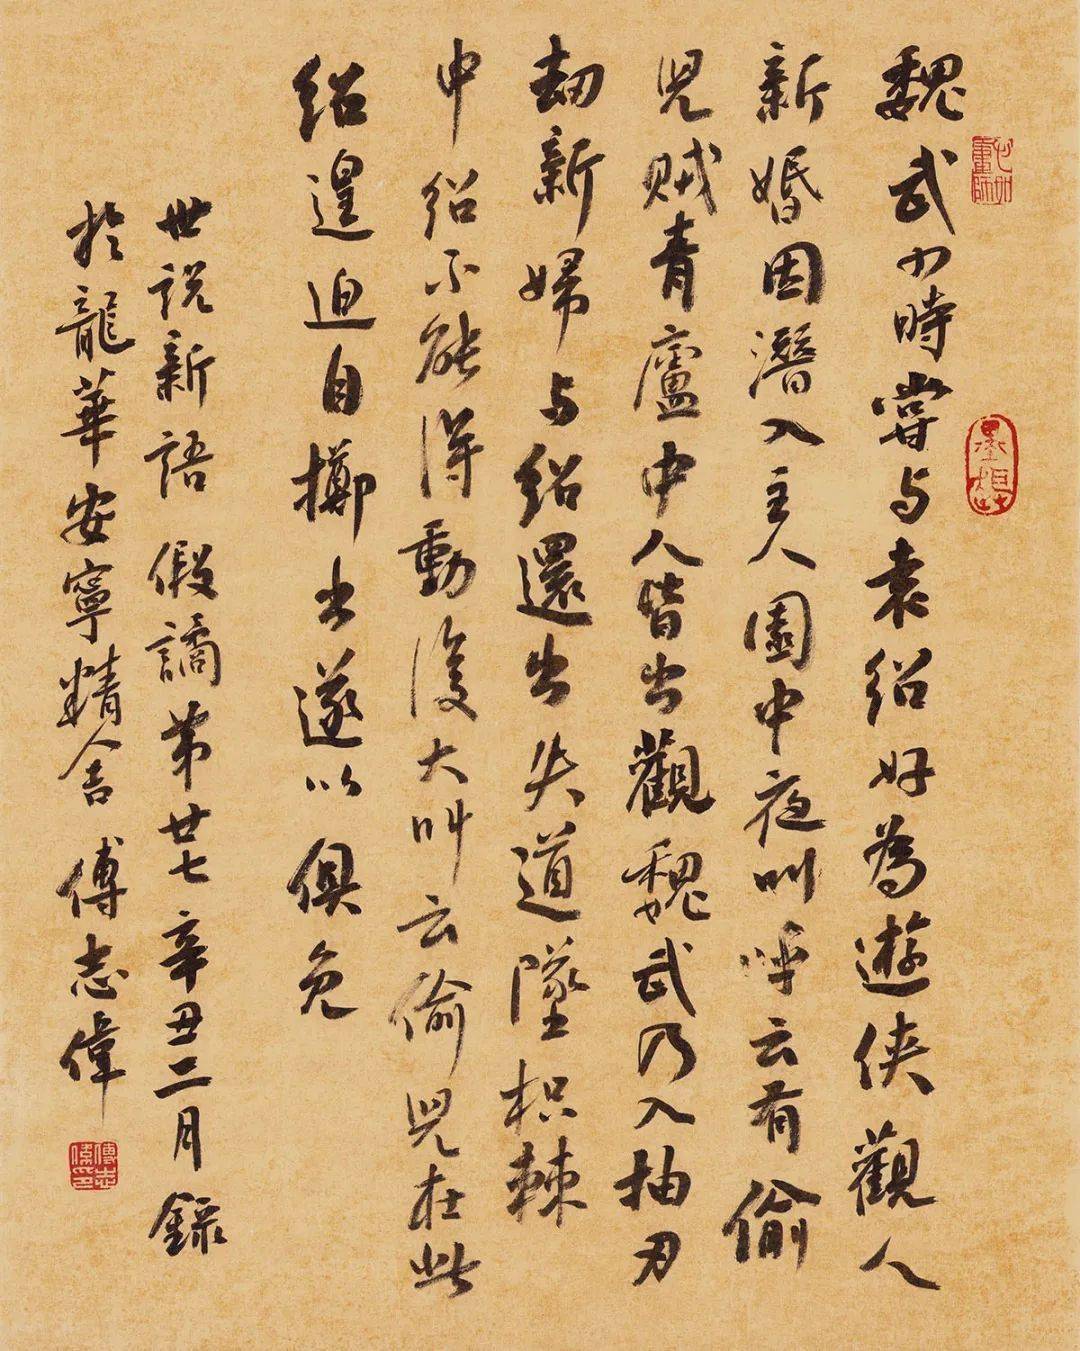 魏武少時嘗与袁紹好為遊俠觀人
新婚因潛入主人園中夜叫呼云有偷
児賊青廬中人皆出觀魏武乃入抽刃
劫新婦与紹還出失道墜枳棘
中紹不能得動復大叫云偷児在此
紹遑迫自擲出遂以俱免
世説新語假譎第廿七辛丑二月錄
於龍華安寧精舍傅志偉
傅志偉印